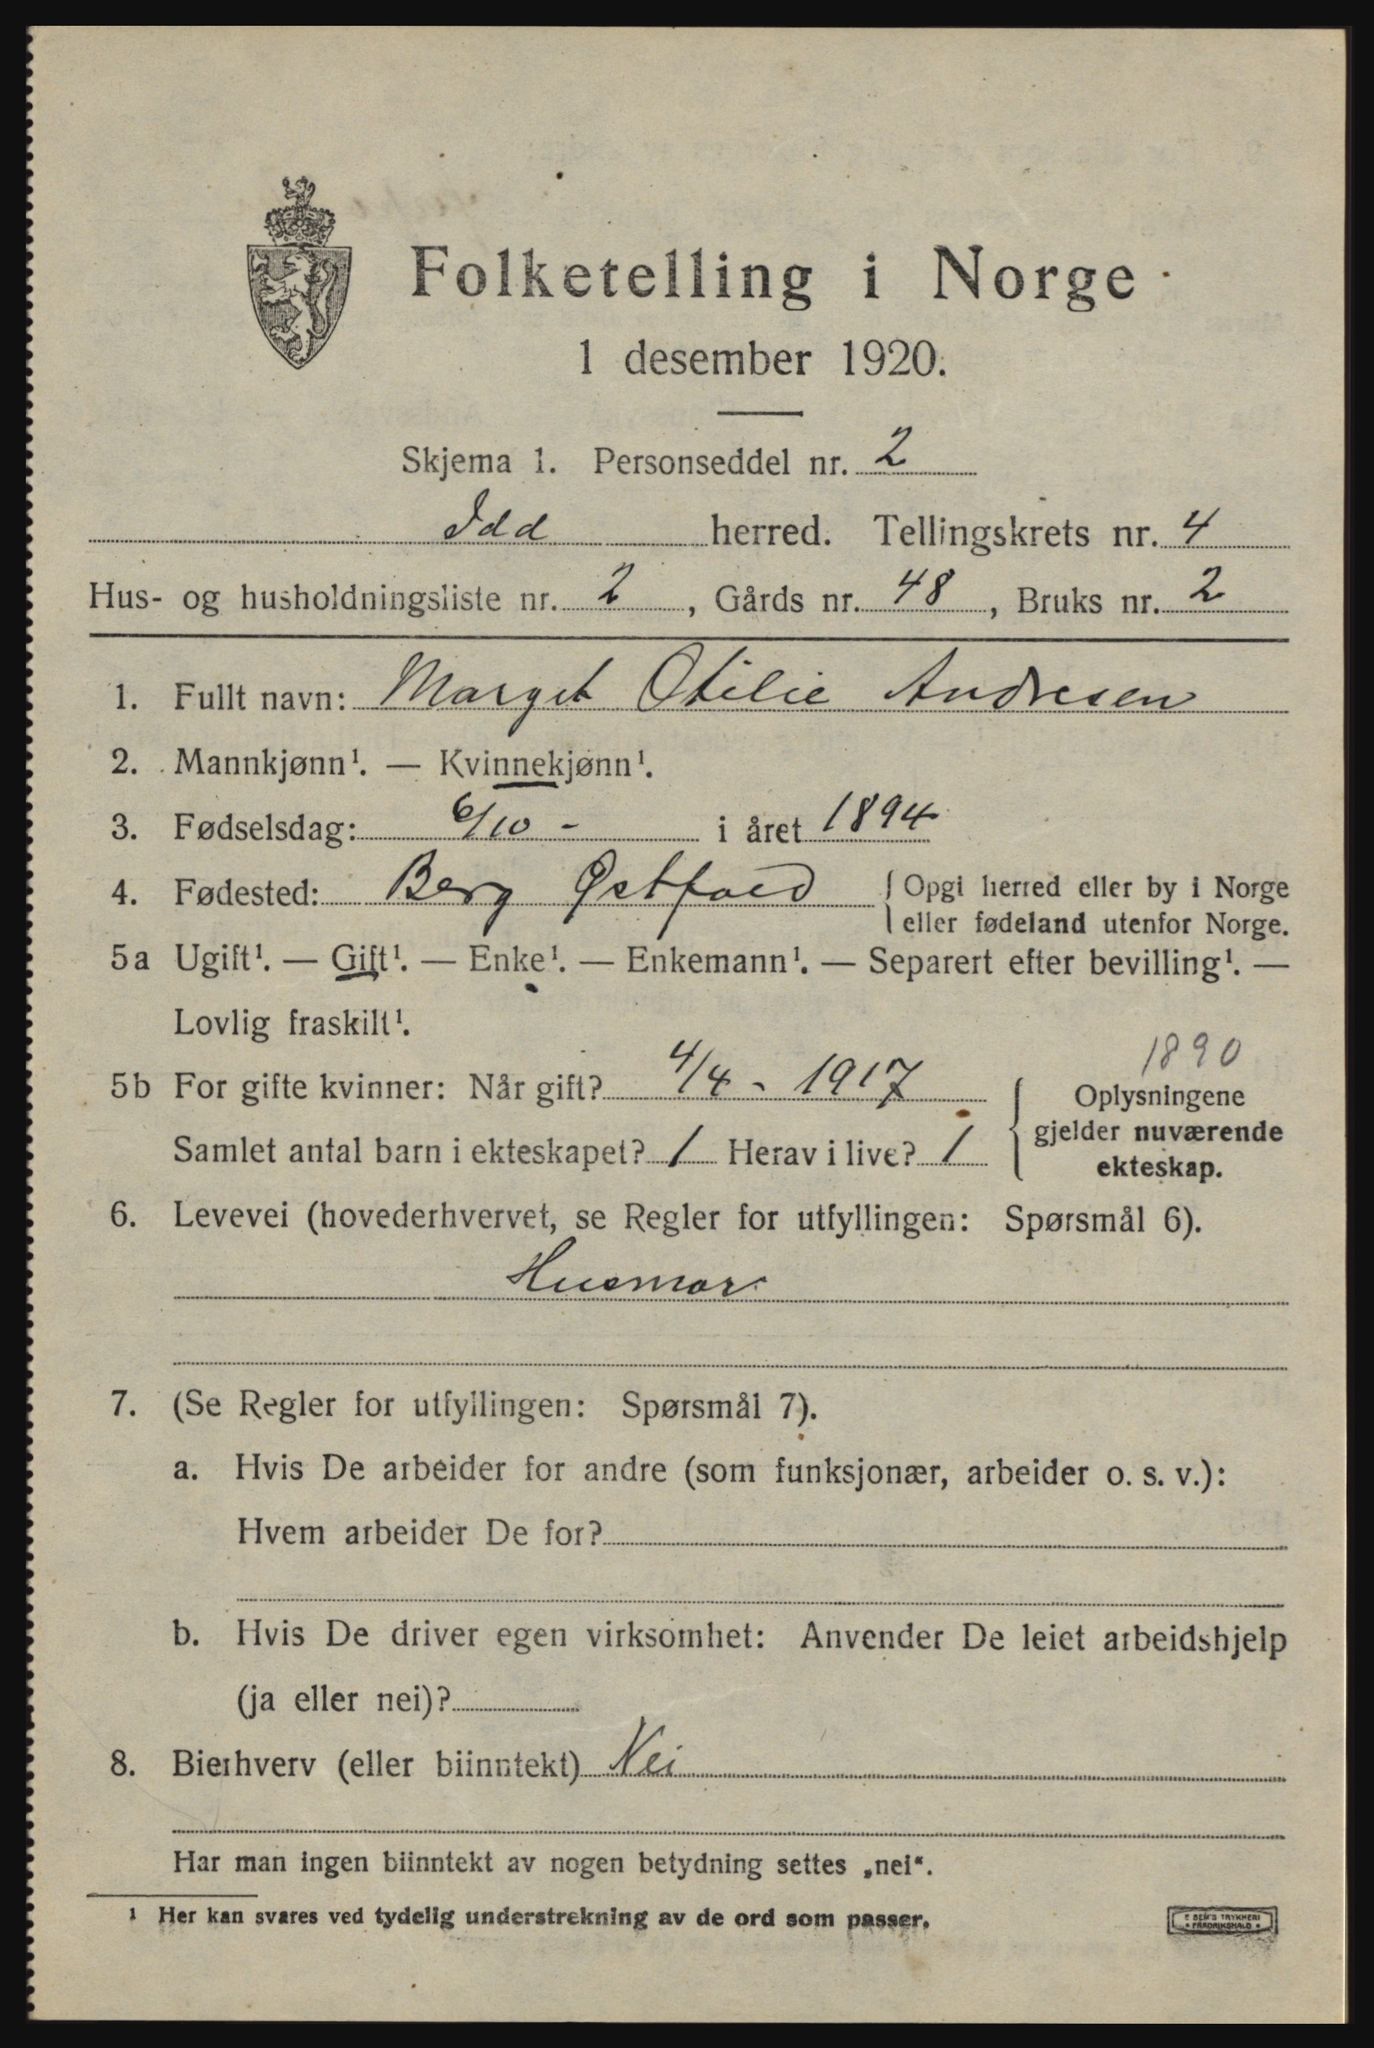 Folketelling i Norge
1 desember 1920.
Skjema 1. Personseddel nr. 2
Idd herred. Tellingskrets nr. 4
Hus- og husholdningsliste nr. 2, Gårds nr. 48, Bruks nr. 2
1. Fullt navn: Marget Otilie Andresen
2. Mannkjønn¹. — Kvinnekjønn¹.
3. Fødselsdag: 6/10 - i året 1894
4. Fødested: Berg Østfold { Opgi herred eller by i Norge
eller fødeland utenfor Norge.
5a Ugift¹. — Gift¹. — Enke¹. — Enkemann¹. — Separert efter bevilling¹. —
Lovlig fraskilt¹.
1890
5b For gifte kvinner: Når gift? 4/4 - 1917 { Oplysningene
gjelder nuværende
Samlet antal barn i ekteskapet? 1 Herav i live? 1 ekteskap.
6. Levevei (hovederhvervet, se Regler for utfyllingen: Spørsmål 6).
Husmor
7. (Se Regler for utfyllingen: Spørsmål 7).
a. Hvis De arbeider for andre (som funksjonær, arbeider o. s. v.):
Hvem arbeider De for?
b. Hvis De driver egen virksomhet: Anvender De leiet arbeidshjelp
(ja eller nei)?
8. Bierhverv (eller biinntekt) Nei
Har man ingen biinntekt av nogen betydning settes „nei“.
¹ Her kan svares ved tydelig understrekning av de ord som passer.
E SEM'S TRYKKERI
• FREDRIKSHALD •